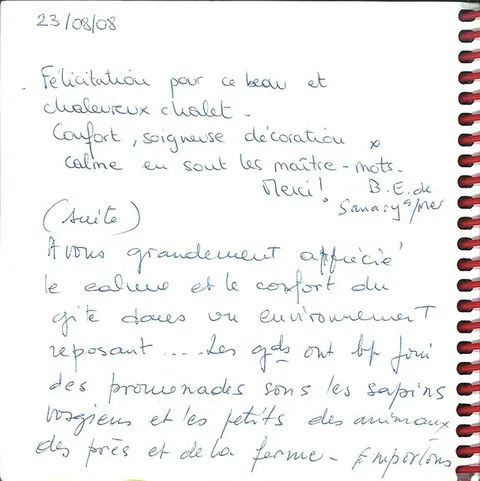 23/08/08
Félicitation pour ce beau et
chaleureux chalet.
Confort, soigneuse décoration
calme en sont les maître-mots.
Merci! B.E. de
Sanary s/mer
(suite)
Avons grandement apprécié
le calme et le confort du
gîte dans un environnement
reposant.... Les gds ont bp joui
des promenades sous les sapins
vosgiens et les petits des animaux
des près et de la ferme - Emportons